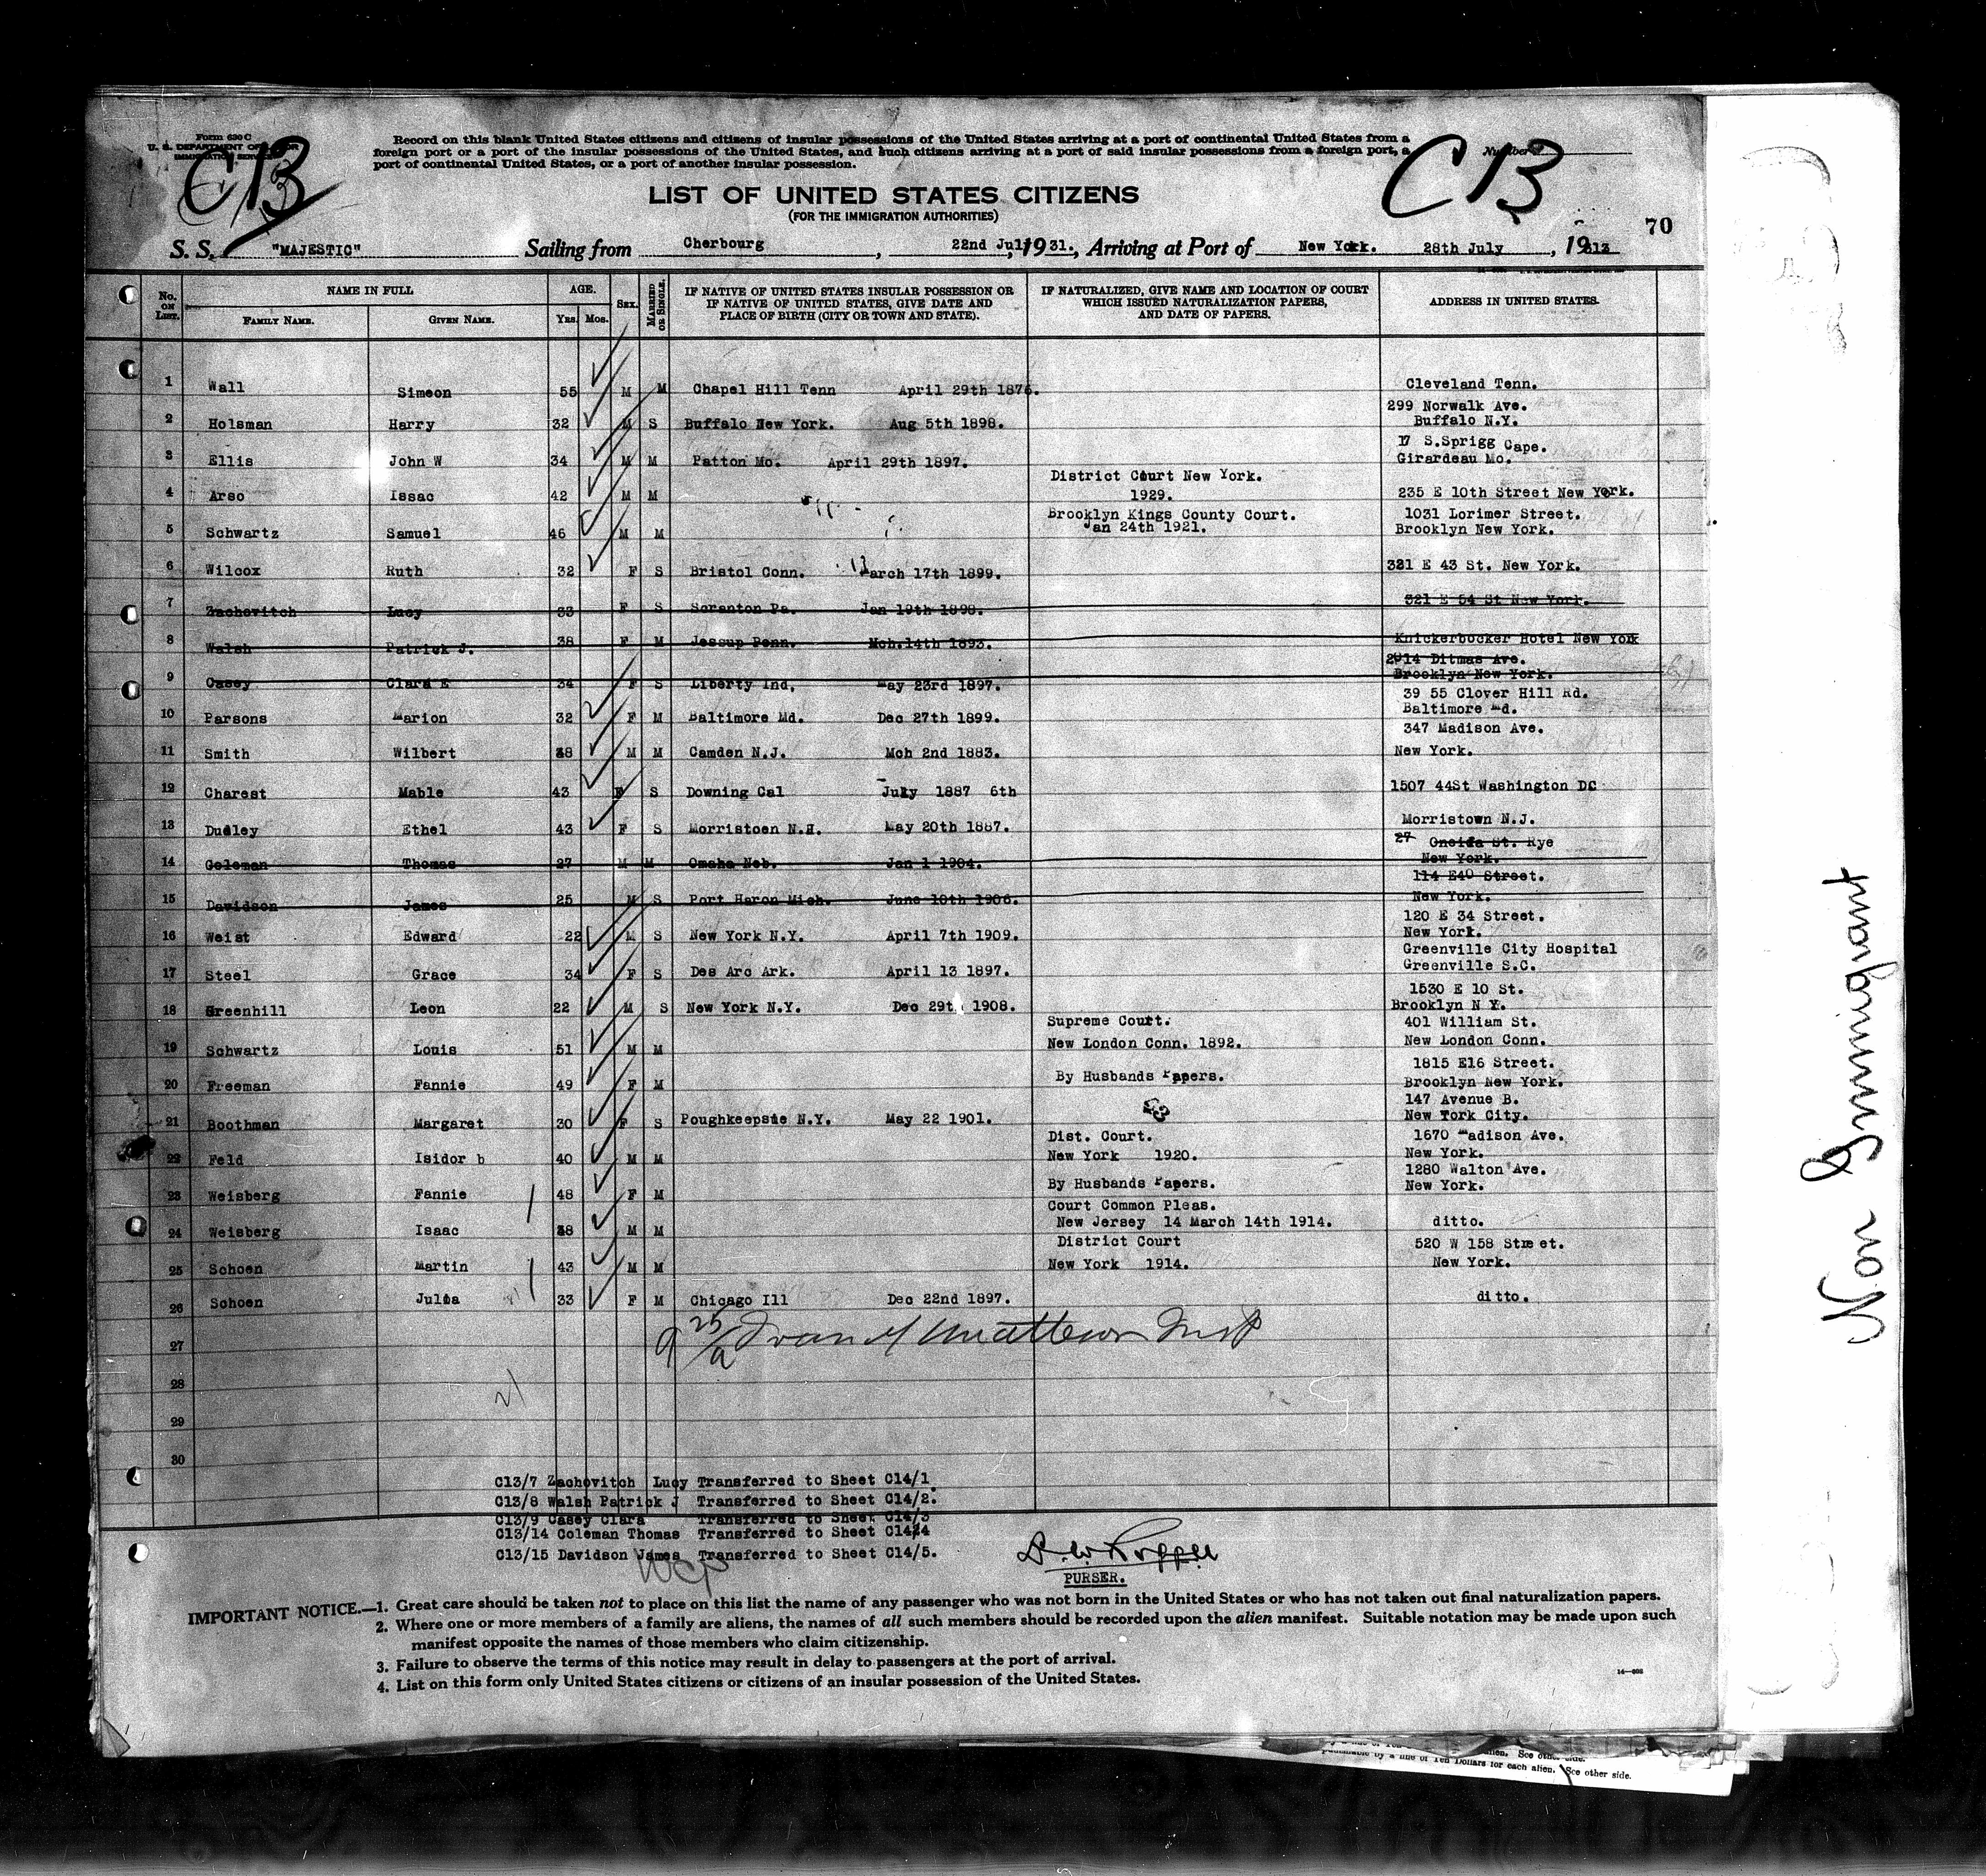 Form 630 C
U. S. DEPARTMENT OF LABOR
IMMIGRATION SERVICE
C13
Record on this blank United States citizens and citizens of insular possessions of the United States arriving at a port of continental United States from a
foreign port or a port of the insular possessions of the United States, and such citizens arriving at a port of said insular possessions from a foreign port, a
port of continental United States, or a port of another insular possession.
Number
C 13
LIST OF UNITED STATES CITIZENS
(FOR THE IMMIGRATION AUTHORITIES)
70
S. S. "MAJESTIC" Sailing from Cherbourg, 22nd July, 1931., Arriving at Port of New York. 28th July, 19
No. ON LIST. NAME IN FULL FAMILY NAME. GIVEN NAME. AGE. Yrs. Mos. SEX. MARRIED OR SINGLE. IF NATIVE OF UNITED STATES INSULAR POSSESSION OR IF NATIVE OF UNITED STATES, GIVE DATE AND PLACE OF BIRTH (CITY OR TOWN AND STATE). IF NATURALIZED, GIVE NAME AND LOCATION OF COURT WHICH ISSUED NATURALIZATION PAPERS, AND DATE OF PAPERS. ADDRESS IN UNITED STATES.
1 Wall Simeon 55 M M Chapel Hill Tenn April 29th 1876. Cleveland Tenn.
2 Holsman Harry 32 M S Buffalo New York. Aug 5th 1898. 299 Norwalk Ave. Buffalo N.Y.
3 Ellis John W 34 M M Patton Mo. April 29th 1897. 17 S.Sprigg Cape. Girardeau Mo.
4 Arso Issac 42 M M District Court New York. 1929. 235 E 10th Street New York.
5 Schwartz Samuel 46 M M Brooklyn Kings County Court. Jan 24th 1921. 1031 Lorimer Street. Brooklyn New York.
6 Wilcox Ruth 32 F S Bristol Conn. March 17th 1899. 321 E 43 St. New York.
7 Zachovitch Lucy 33 F S Scranton Pa. Jan 19th 1898. 321 E 54 St New York.
8 Walsh Patrick J. 38 F M Jessup Penn. Mch.14th 1893. Knickerbocker Hotel New York
9 Casey Clara E 34 F S Liberty Ind. May 23rd 1897. 2914 Ditmas Ave. Brooklyn New York.
10 Parsons Marion 32 F M Baltimore Md. Dec 27th 1899. 39 55 Clover Hill Rd. Baltimore Md.
11 Smith Wilbert 48 M M Camden N.J. Mch 2nd 1883. 347 Madison Ave. New York.
12 Charest Mable 43 F S Downing Cal July 1887 6th 1507 44St Washington DC
13 Dudley Ethel 43 F S Morristoen N.H. May 20th 1887. Morristown N.J.
14 Coleman Thomas 27 M M Omaha Neb. Jan 1 1904. 27 Oneida St. Rye New York.
15 Davidson James 25 M S Port Haron Mich. June 10th 1906. 114 E40 Street. New York.
16 Weist Edward 22 M S New York N.Y. April 7th 1909. 120 E 34 Street. New York.
17 Steel Grace 34 F S Des Arc Ark. April 13 1897. Greenville City Hospital Greenville S.C.
18 Greenhill Leon 22 M S New York N.Y. Dec 29th 1908. 1530 E 10 St. Brooklyn N Y.
19 Schwartz Louis 51 M M Supreme Court. New London Conn. 1892. 401 William St. New London Conn.
20 Freeman Fannie 49 F M By Husbands Papers. 1815 E16 Street. Brooklyn New York.
21 Boothman Margaret 30 F S Poughkeepsie N.Y. May 22 1901. 147 Avenue B. New York City.
22 Feld Isidor b 40 M M Dist. Court. New York 1920. 1670 Madison Ave. New York.
23 Weisberg Fannie 48 F M By Husbands Papers. 1280 Walton Ave. New York.
24 Weisberg Isaac 48 M M Court Common Pleas. New Jersey 14 March 14th 1914. ditto.
25 Schoen Martin 43 M M District Court New York 1914. 520 W 158 Street. New York.
26 Schoen Julia 33 F M Chicago Ill Dec 22nd 1897. ditto.
27
28
29
30
C13/7 Zachovitch Lucy Transferred to Sheet C14/1
C13/8 Walsh Patrick J Transferred to Sheet C14/2.
C13/9 Casey Clara Transferred to Sheet C14/3
C13/14 Coleman Thomas Transferred to Sheet C14/4
C13/15 Davidson James Transferred to Sheet C14/5.
PURSER.
IMPORTANT NOTICE.—1. Great care should be taken not to place on this list the name of any passenger who was not born in the United States or who has not taken out final naturalization papers.
2. Where one or more members of a family are aliens, the names of all such members should be recorded upon the alien manifest. Suitable notation may be made upon such
manifest opposite the names of those members who claim citizenship.
3. Failure to observe the terms of this notice may result in delay to passengers at the port of arrival.
4. List on this form only United States citizens or citizens of an insular possession of the United States.
Non Immigrant
See other side.
punishable by a fine of Ten Dollars for each alien. See other side.